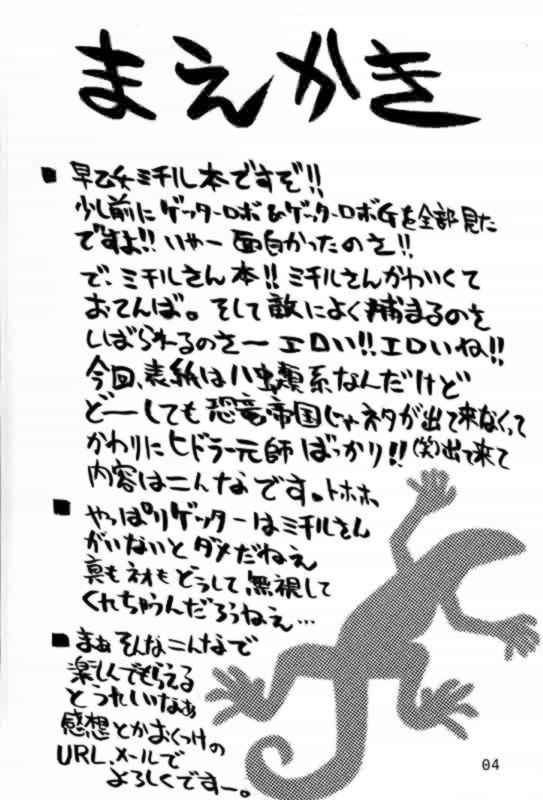 まえかき
■ 早乙女ミチル本ですぞ!!
少し前にゲッターロボ&ゲッターロボGを全部見た
ですよ!! いやー 面白かったのさ!!
で、ミチルさん本!! ミチルさんかわいくて
おてんば。そして敵によく捕まるのさ
しばられるのさー エロい!! エロいね!!
今回、表紙はハ虫類系なんだけど
どーしても恐竜帝国じゃネタが出て来なくって
かわりにヒドラー元師ばっかり!! (笑)出て来て
内容はこんなです。トホホ
■ やっぱりゲッターはミチルさん
がいないとダメだねえ
真もネオもどうして無視して
くれちゃうんだろうねえ…
■ まぁそんなこんなで
楽しんでもらえる
とうれしいなぁ
感想とかおくつけの
URL、メールで
よろしくですー。
04